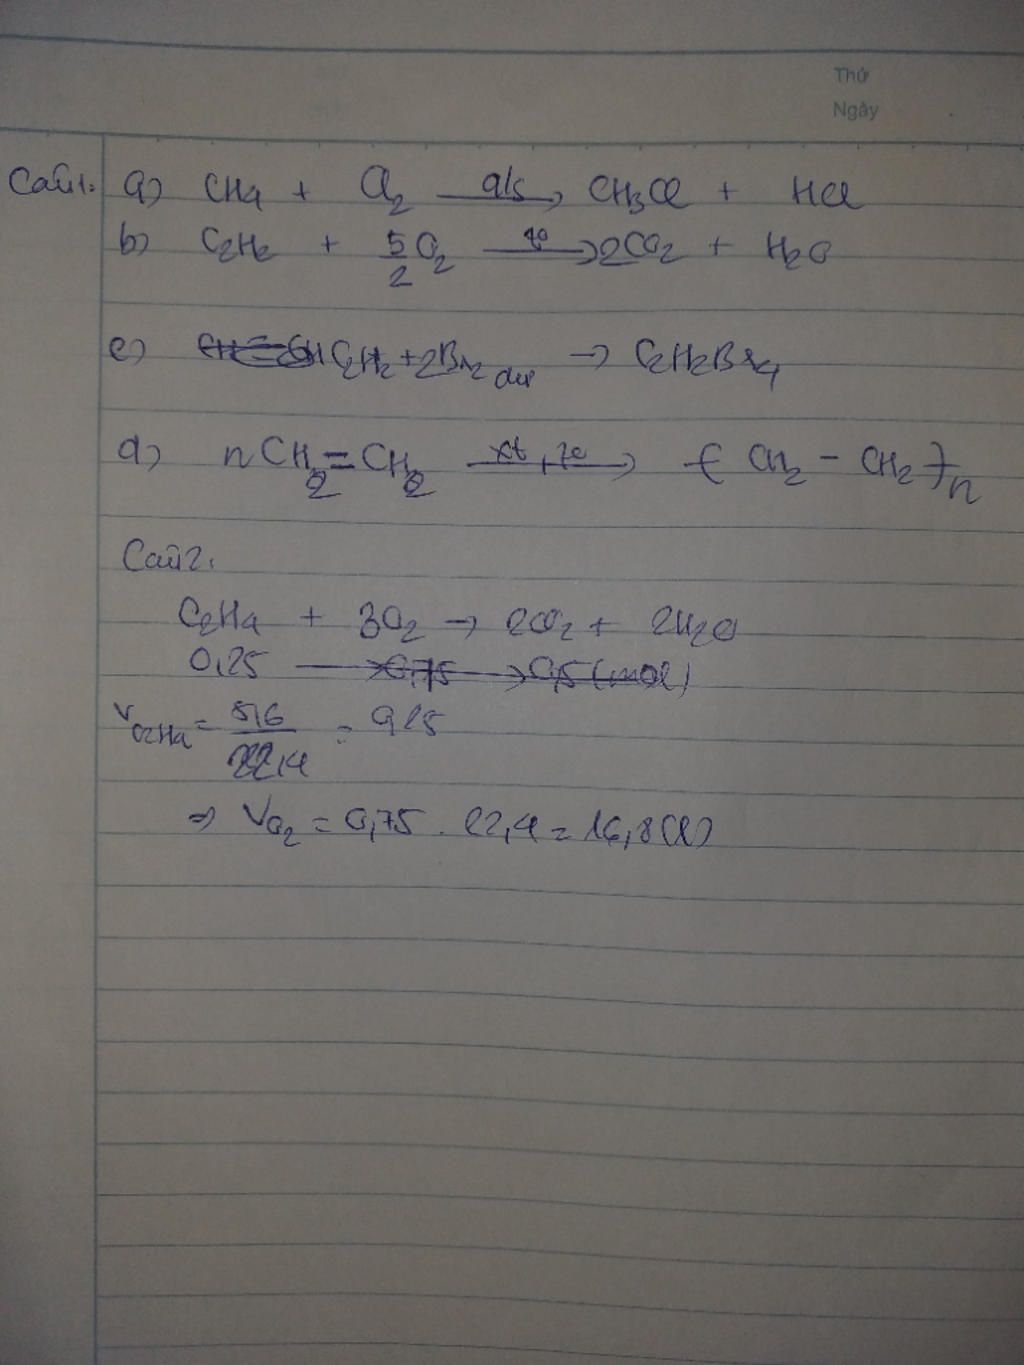 Thứ
Ngày
Câu1: a) CH4 + Cl2 —a/s→ CH3Cl + HCl
b) C2H2 + 5/2 O2 —to→ 2CO2 + H2O
c) C2H2 + 2Br2 dư → C2H2Br4
d) nCH2=CH2 —xt, to→ -( CH2 - CH2 )-n
Câu2:
C2H4 + 3O2 → 2CO2 + 2H2O
0,25 → 0,75 → 0,5 (mol)
VC2H4 = 5,6/22,4 = 0,25
=> VO2 = 0,75 . 22,4 = 16,8(l)